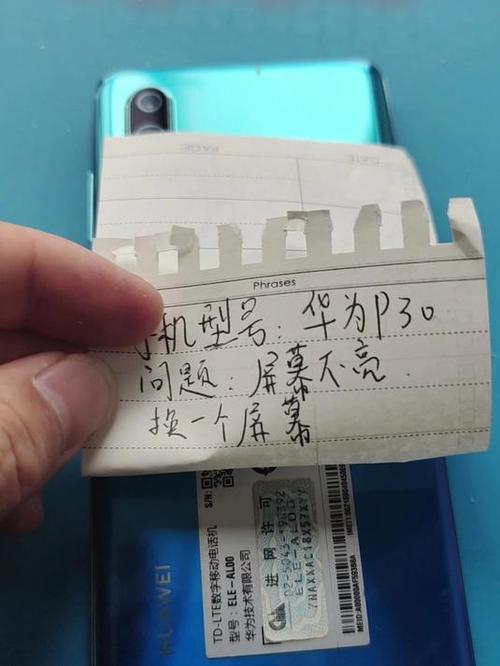 PAGE
DATE
Phrases
手机型号: 华为P30
问题: 屏幕不亮.
换一个屏幕
S/N:
TD-LTE数字移动电话机
型号: ELE-AL00
华为技术有限公司
进网许可
ELE-AL00
HUAWEI